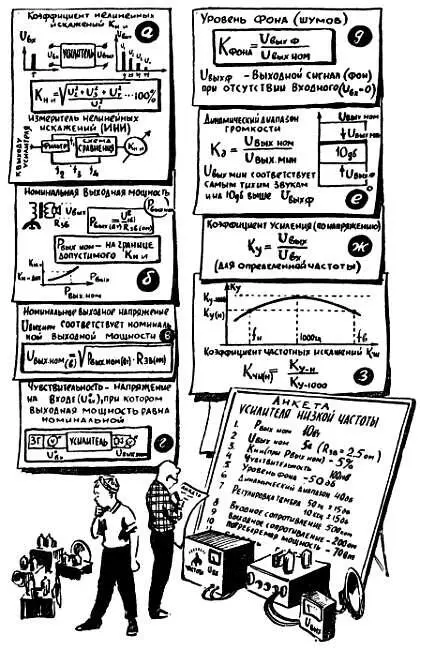 Коэффициент нелинейных
искажений Кни
а
Uвх
УСИЛИТЕЛЬ
Uвых
Кни = √ U₂² + U₃² + U₄² / U₁² ... 100%
Измеритель нелинейных
искажений (ИНИ)
К ВЫХОДУ
УСИЛИТЕЛЯ
ФИЛЬТР
f₁
СХЕМА
СРАВНЕНИЯ
Кни
f₂ f₃ f₄
Номинальная выходная мощность
Uвых
Rзв
Рвых ном
Рвых ном – на границе
допустимого Кни
Кни
Рвых
Рвых ном
б
Номинальное выходное напряжение
Uвых ном соответствует номиналь-
ной выходной мощности
в
Uвых.ном(в) = √ Рвых.ном(вт) · Rзв(ом)
Чувствительность – напряжение
на входе (Uвх), при котором
выходная мощность равна
номинальной
ЗГ
УСИЛИТЕЛЬ
Uвх
Uвых ном
г
Уровень Фона (шумов)
Кфона = Uвых ф / Uвых ном
д
Uвых ф – Выходной сигнал (фон)
при отсутствии входного (Uвх=0)
Динамический диапазон
громкости
Кд = Uвых ном / Uвых. мин
Uвых мин соответствует
самым тихим звукам
и на 10дб выше Uвых ф
Uвых ном
Uвых мин
10дб
Uвых ф
е
Коэффициент Усиления (по напряжению)
Ку = Uвых / Uвх
(для определенной частоты)
ж
Ку
Ку-1000
Ку(н)
fн
1000гц
fв
Коэффициент частотных искажений Кчи
Кчи(н) = Ку-н / Ку-1000
з
АНКЕТА
УСИЛИТЕЛЯ НИЗКОЙ ЧАСТОТЫ
1. Рвых ном 10вт
2. Uвых ном 5в (Rзв = 2.5 ом)
3. Кни (при Рвых ном) – 5%
4. Чувствительность 100мв
5. Уровень фона – 50дб
6. Динамический диапазон 40дб
7. Регулировка тембра 50гц ± 15дб
10кгц ± 15дб
8. Входное сопротивление 500ком
9. Выходное сопротивление – 200ом
10. Потребляемая мощность – 70вт
АНКЕТА
ЧАСТОТЫ
Uвх
Uвых